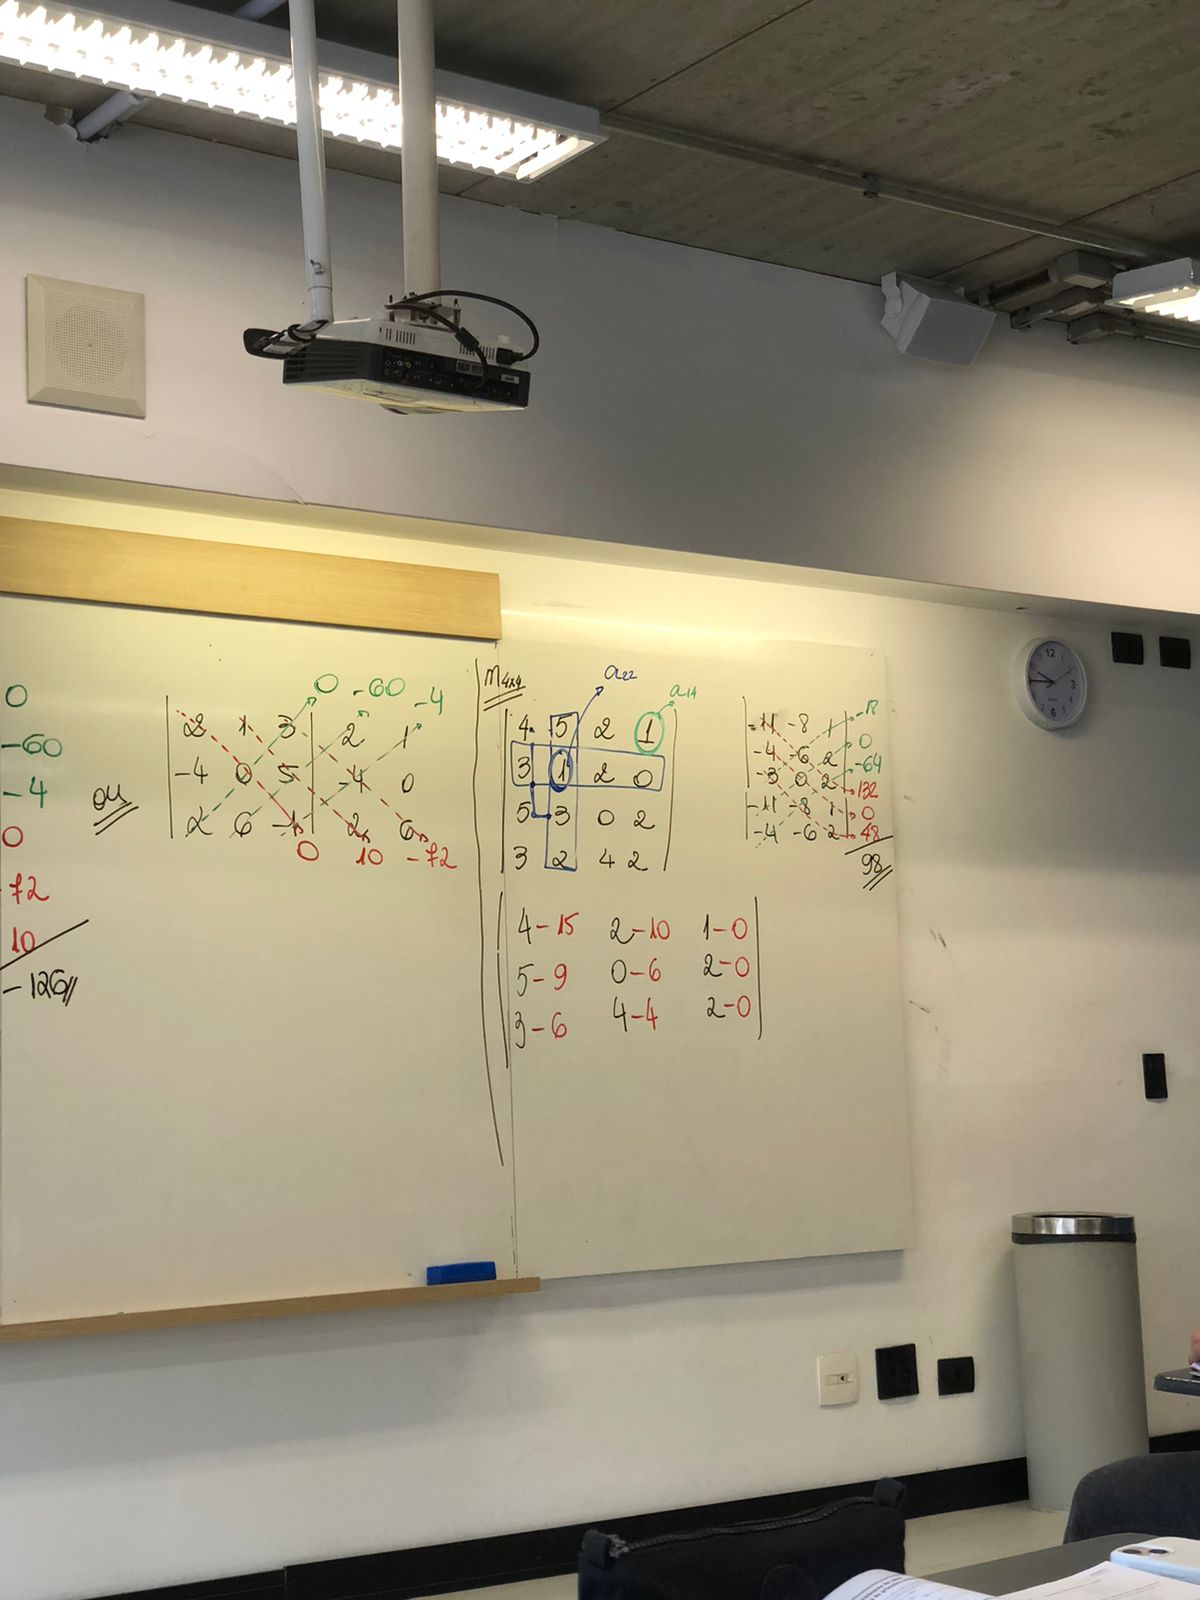 0
-60
-4
0
72
10
-126
ou
0 -60 -4
2 1 3 2 1
-4 0 5 -4 0
2 6 -1 2 6
0 10 -72
M4x4
a22
a14
4 5 2 1
3 1 2 0
5 3 0 2
3 2 4 2
4-15 2-10 1-0
5-9 0-6 2-0
3-6 4-4 2-0
-11 -8 1
-4 -6 2
-3 0 2
-11 -8 1
-4 -6 2
-18
0
-64
132
0
48
98
12